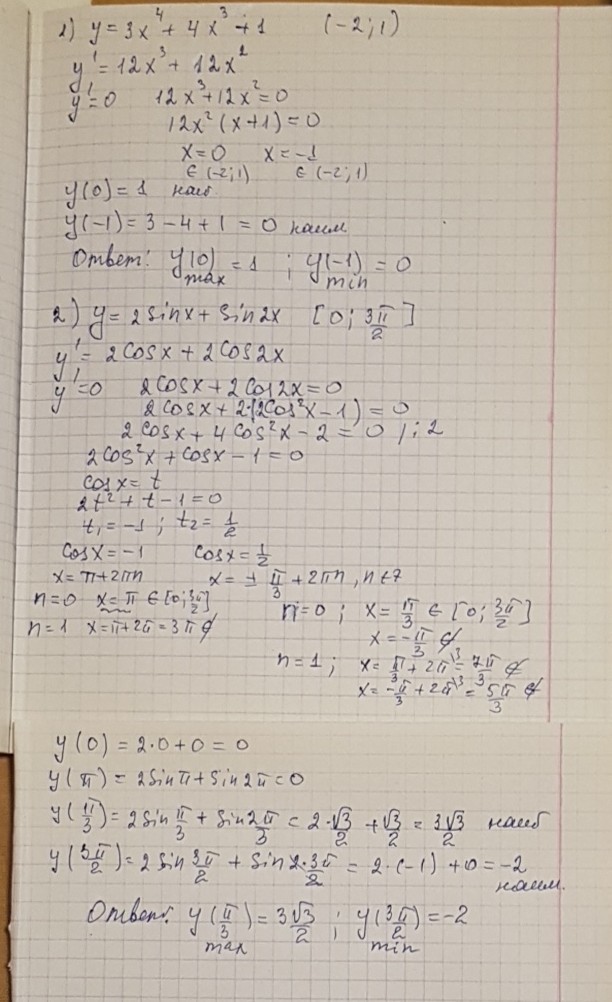 1) y = 3x⁴ + 4x³ + 1 (-2; 1)
y' = 12x³ + 12x²
y' = 0 12x³ + 12x² = 0
12x² (x+1) = 0
x = 0 x = -1
∈ (-2; 1) ∈ (-2; 1)
y(0) = 1 наиб
y(-1) = 3 - 4 + 1 = 0 наим
Ответ: y(0) = 1 ; y(-1) = 0
max min
2) y = 2 sin x + sin 2x [0; 3π/2]
y' = 2 cos x + 2 cos 2x
y' = 0 2 cos x + 2 cos 2x = 0
2 cos x + 2·(2cos²x - 1) = 0
2 cos x + 4 cos²x - 2 = 0 /: 2
2 cos²x + cos x - 1 = 0
cos x = t
2t² + t - 1 = 0
t₁ = -1 ; t₂ = 1/2
cos x = -1 cos x = 1/2
x = π + 2πn x = ± π/3 + 2πn, n ∈ Z
n = 0 x = π ∈ [0; 3π/2]
n = 1 x = π + 2π = 3π ∉
n = 0 ; x = π/3 ∈ [0; 3π/2]
x = -π/3 ∉
n = 1 ; x = π/3 + 2π\3 = 7π/3 ∉
x = -π/3 + 2π\3 = 5π/3 ∉
y(0) = 2·0 + 0 = 0
y(π) = 2 sin π + sin 2π = 0
y(π/3) = 2 sin π/3 + sin 2π/3 = 2·√3/2 + √3/2 = 3√3/2 наиб
y(3π/2) = 2 sin 3π/2 + sin 2·3π/2 = 2·(-1) + 0 = -2
наим.
Ответ: y(π/3) = 3√3/2 ; y(3π/2) = -2
max min